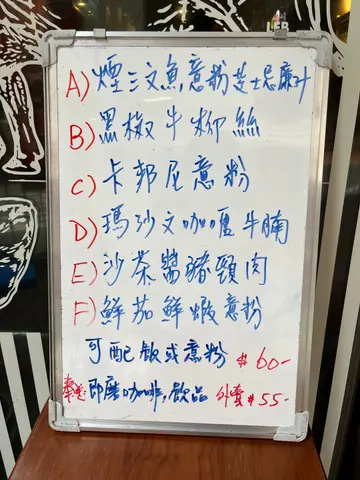 A) 煙三文魚意粉芝士忌廉汁
B) 黑椒牛柳絲
C) 卡邦尼意粉
D) 瑪沙文咖喱牛腩
E) 沙茶醬豬頸肉
F) 鮮茄鮮蝦意粉
可配飯或意粉 $60-
奉送 即磨咖啡,飲品 外賣 $55-